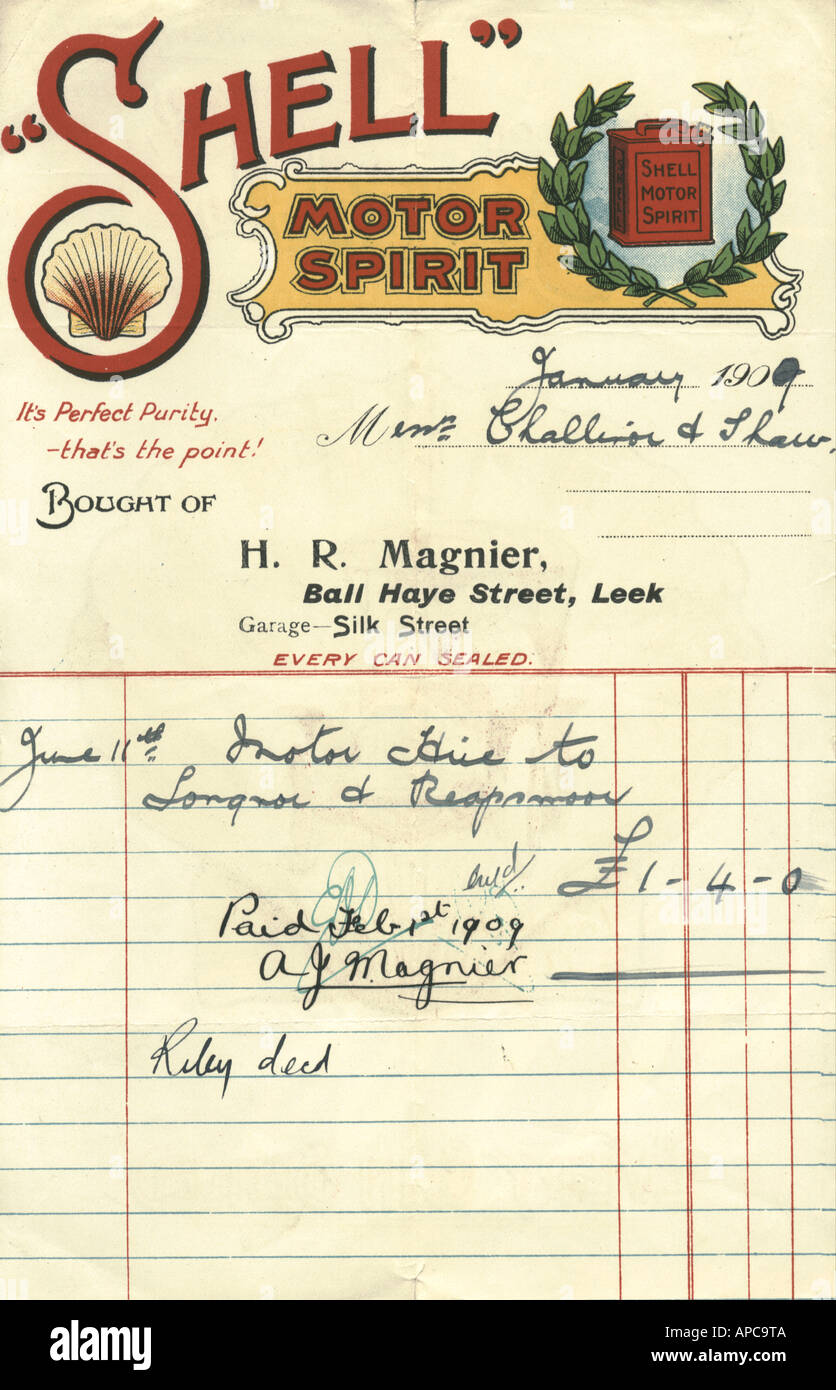 "SHELL"
MOTOR
SPIRIT
SHELL
MOTOR
SPIRIT
SHELL
January 1909
It's Perfect Purity,
-that's the point!
Messrs Challinor & Shaw.
BOUGHT OF
H. R. Magnier,
Ball Haye Street, Leek
Garage—Silk Street
EVERY CAN SEALED.
June 11th Motor Hire to
Longnor & Reapsmoor
£1-4-0
Paid Feb 1st 1909
A J Magnier
Riley decd
alamy
Image ID: APC9TA
www.alamy.com